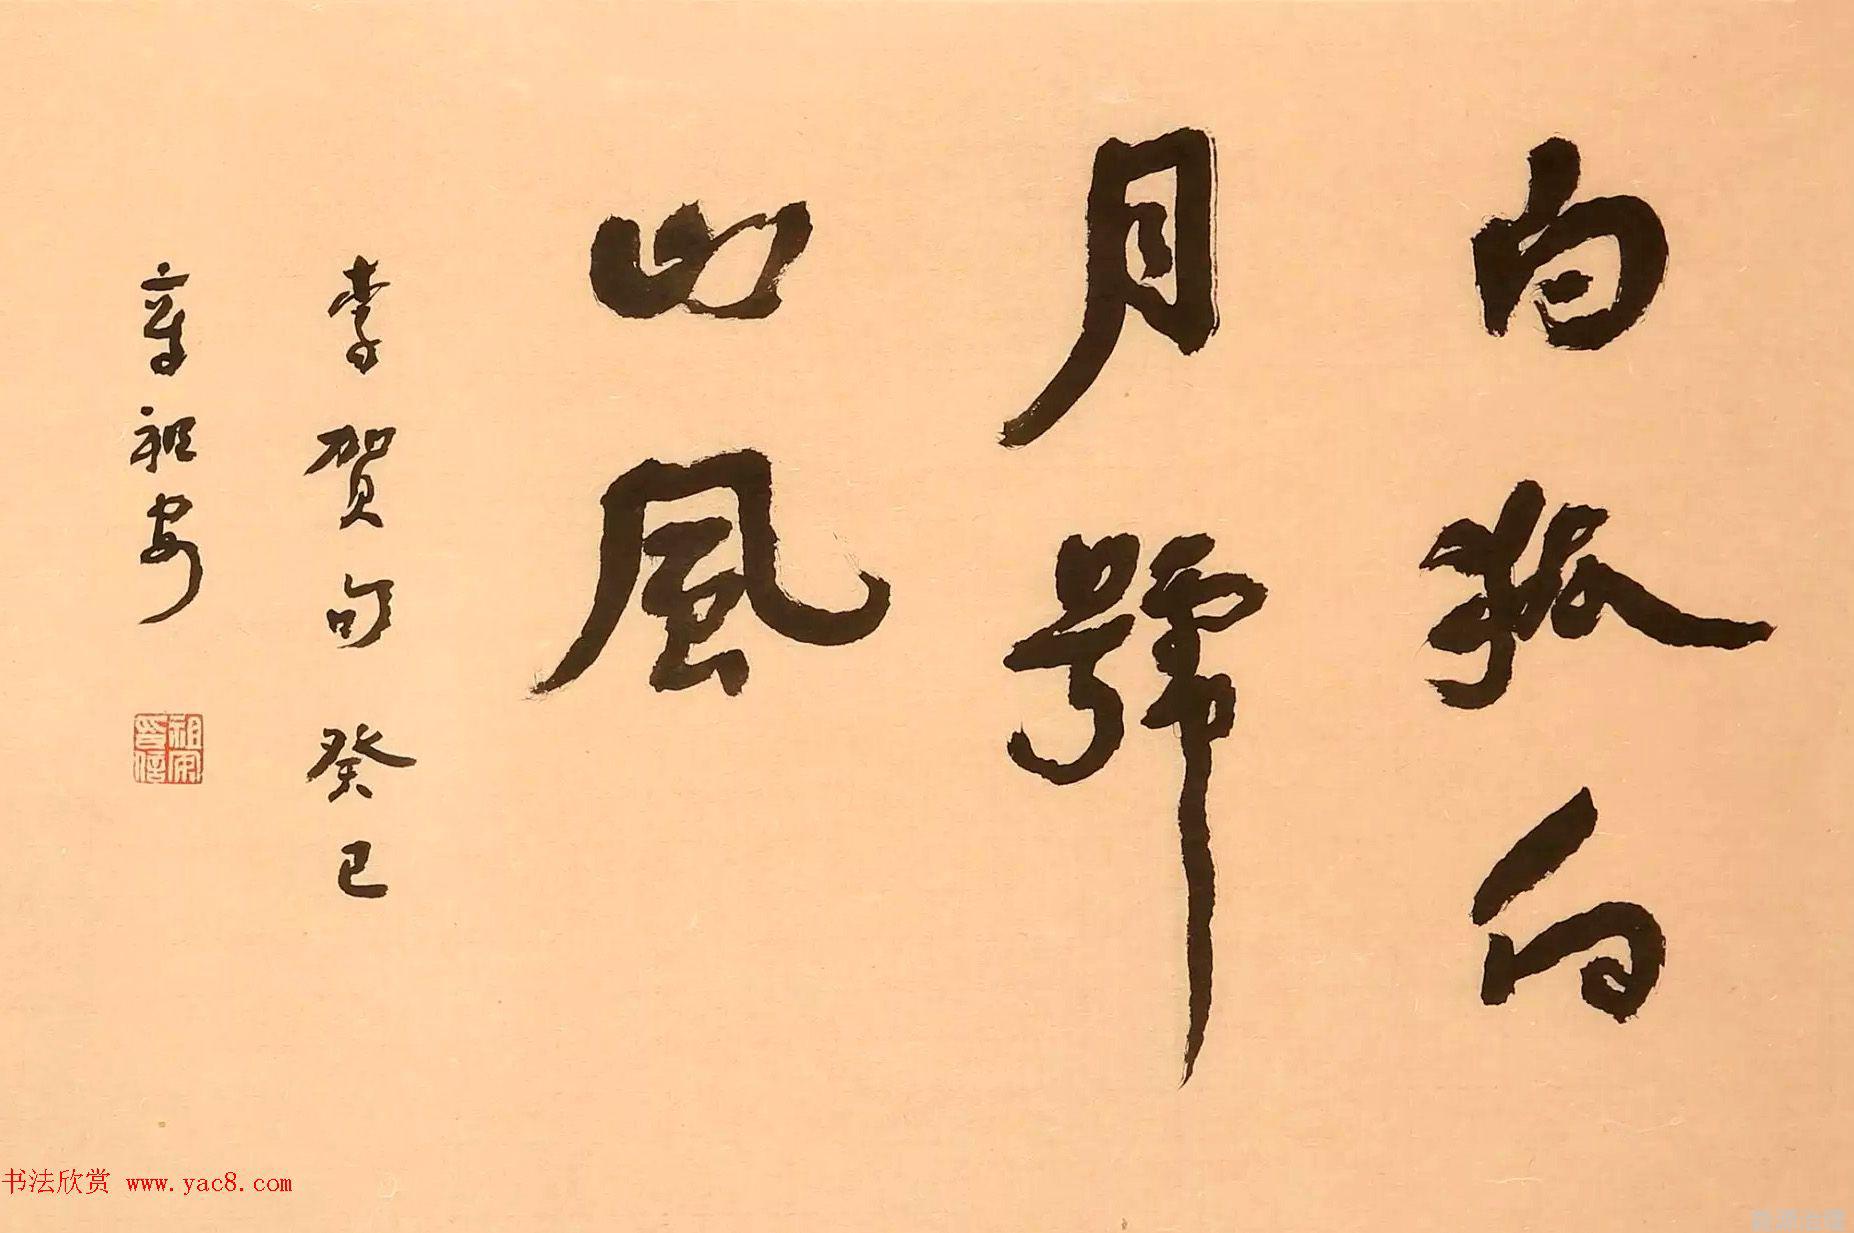 白狐向
月號
山風
李贺句 癸巳
章祖安
祖安
印信
书法欣赏 www.yac8.com